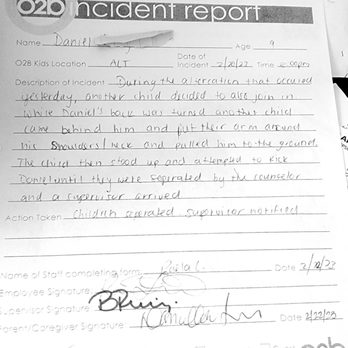 O2B incident report
Name Daniel Age 9
O2B Kids Location ALT Date of Incident 2/20/23 Time 2:00pm
Description of Incident During the altercation that occured
yesterday, another child decided to also join in
While Daniel's back was turned another child
came behind him and put their arm around
his Shoulders/neck and pulled him to the ground.
The child then stood up and attempted to kick
Daniel until they were seperated by the counselor
and a supervisor arrived
Action Taken Children seperated supervisor notified
Name of Staff completing form Date
Employee Signature
Supervisor Signature
Parent/Caregiver Signature Date 2/22/23